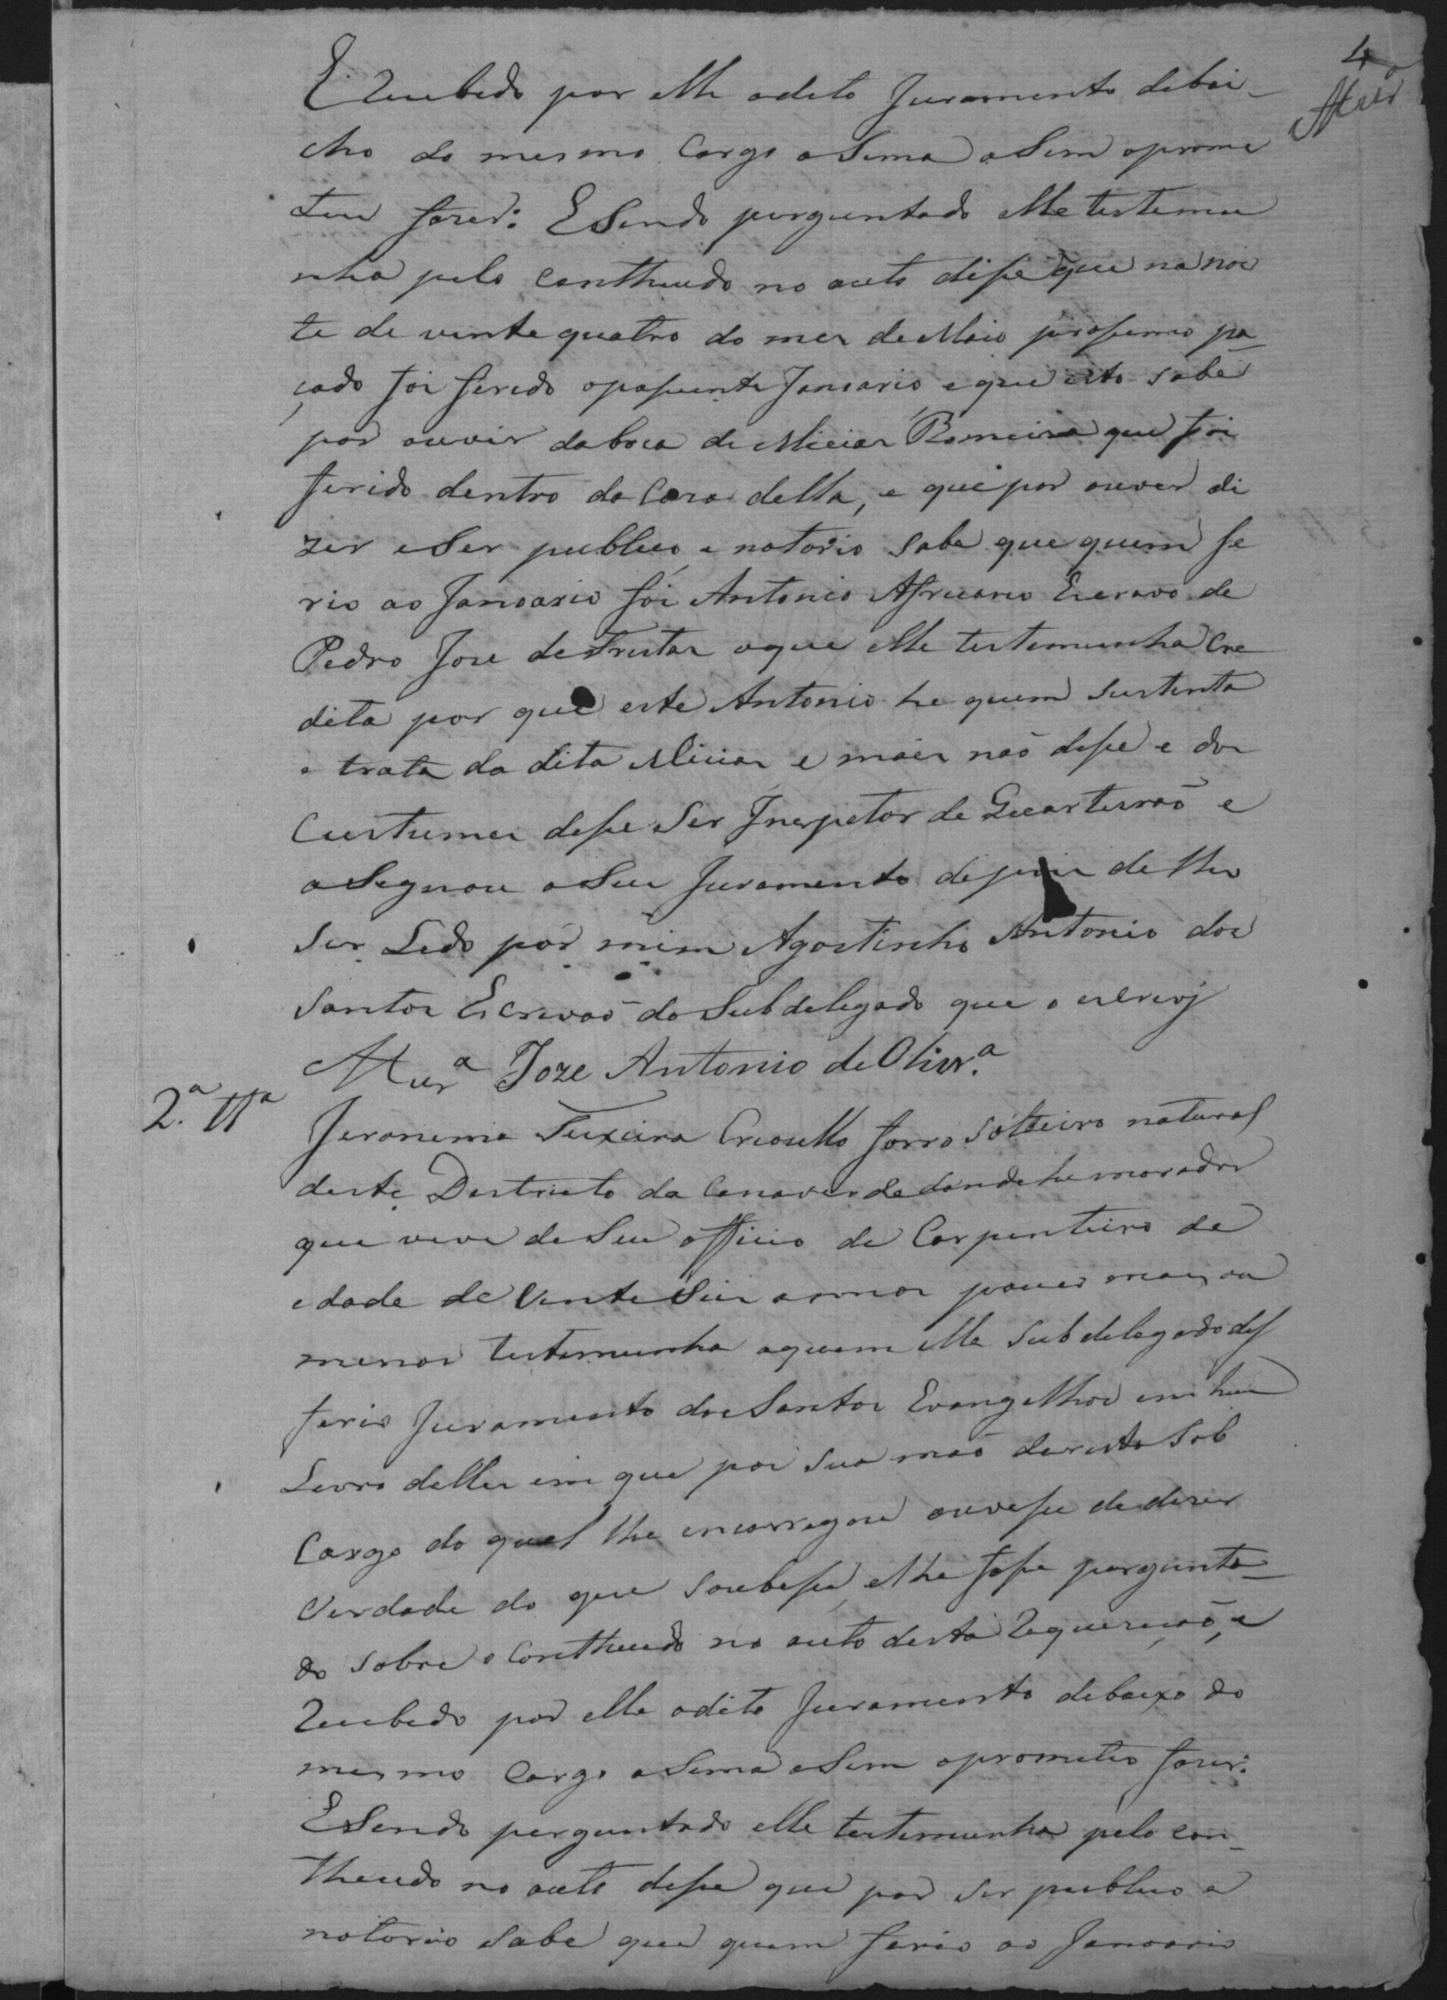 4
E Recebido por elle o dito Juramento debai-
cho do mesmo Cargo asima asim o prome
teu fazer: E Sendo perguntado elle testemu
nha pelo contheudo no auto disse que na noi
te de vinte quatro do mes de Maio prossimo pa-
çado foi ferido o passiente Januario e que isto sabe
por ouvir da boca de Romeira que foi
ferido dentro da Caza della, e que por ouvir di
zer e Ser publico e notorio sabe que quem fe
rio ao Januario foi Antonio Africano Escravo de
Pedro Jose de Freitas o que elle testemunha Cre
dita por que este Antonio he quem sustenta
e trata da dita e mais não disse e dos
Custumes disse Ser Inspetor de Quarteirão e
asignou o Seu Juramento depois de lhe
ser Lido por mim Agostinho Antonio dos
Santos Escrivão do Subdelegado que o escrevj
Joze Antonio de Olivr.ª
2.ª Tt.ª
Jeronimo Teixeira Crioullo forro solteiro natural
deste Destricto da Canaverde donde he morador
que vive de Seu officio de Carpinteiro de
idade de Vinte Seis annos pouco mais ou
menos testemunha aquem elle Subdelegado def
ferio Juramento dos Santos Evangelhos em hum
Livro delles em que pos sua mão dereita Sob
Cargo do qual lhe encarregou ouvesse de dizer
Verdade do que soubesse, e lhe fosse pergunta-
do sobre o Contheudo no auto desta Requerição, e
Recebido por elle o dito Juramento debaixo do
mesmo Cargo asima asim o prometeo fazer:
E Sendo perguntado elle testemunha pelo con-
theudo no auto disse que por ser publico e
notorio sabe que quem ferio ao Januario